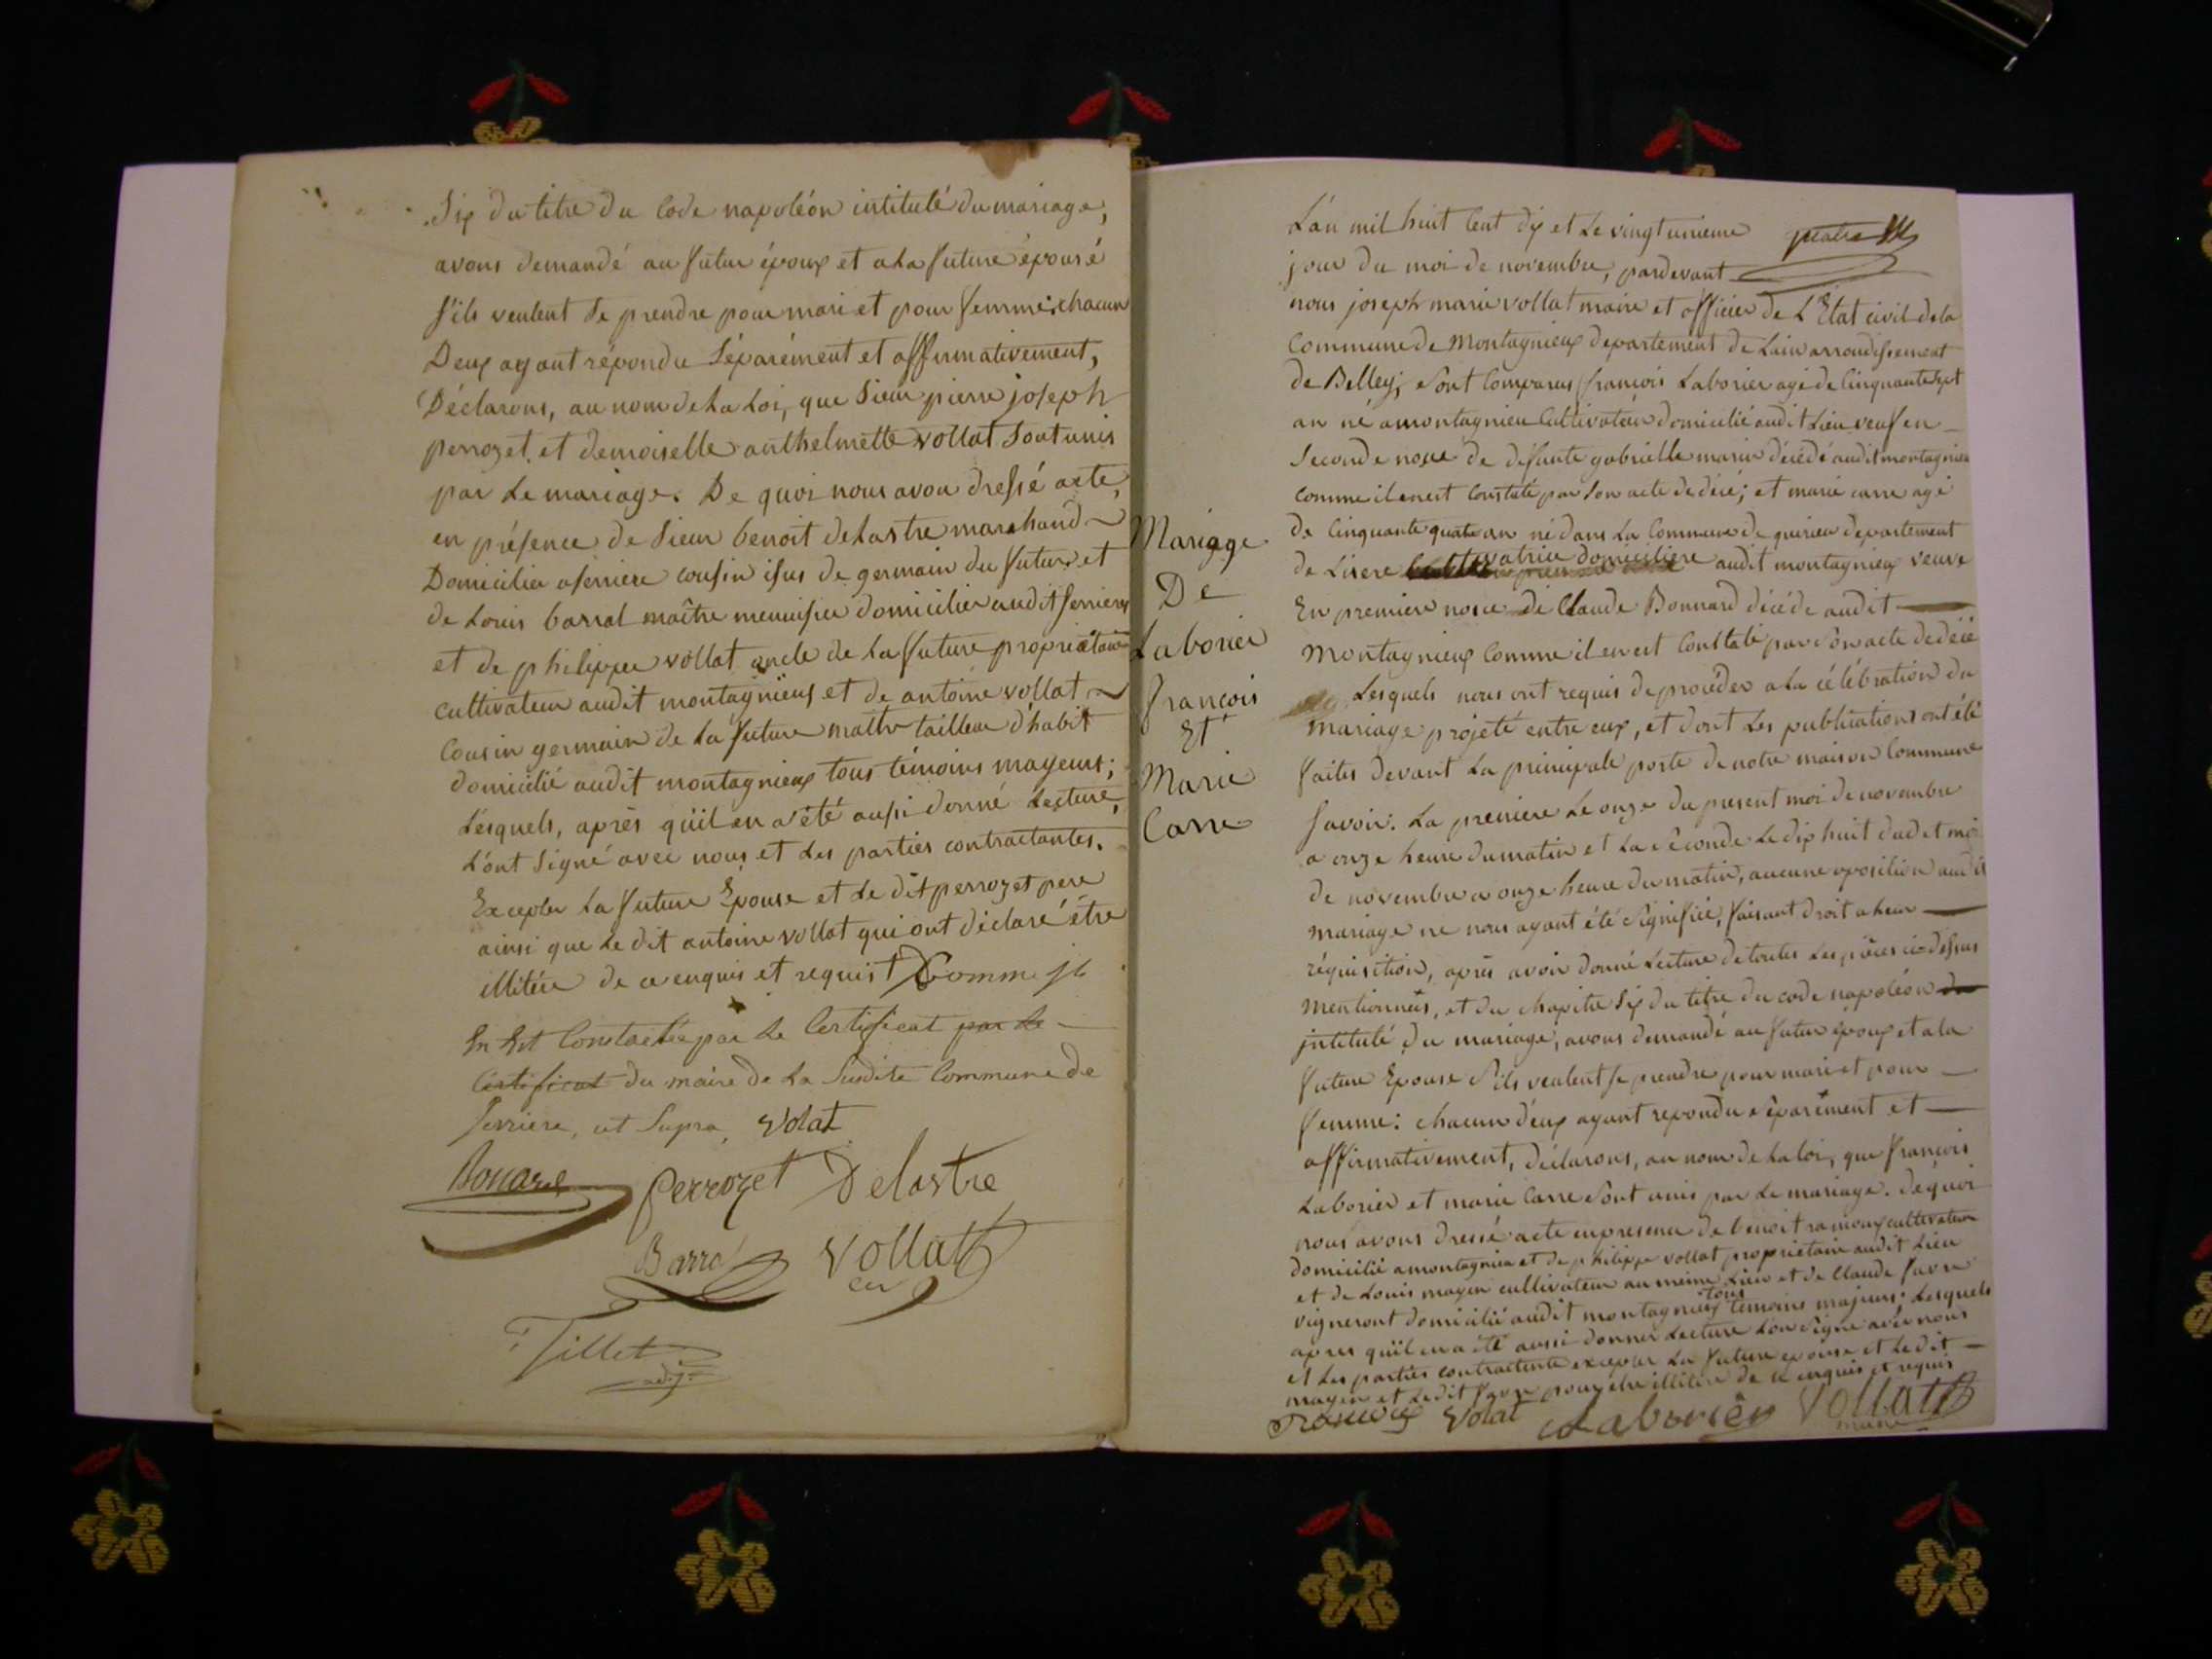 Six du titre du Code napoléon intitulé du mariage,
avons demandé au futur époux et a la future épousé
s'ils veulent se prendre pour mari et pour femme: chacun
Deux ayant répondu Séparément et affirmativement,
Déclarons, au nom de la Loi, que Sieur pierre joseph
perrozet et demoiselle anthelmette vollat Sont unis
par le mariage. De quoi nous avon dressé acte,
en présence de Sieur benoit delastre marchand
Domicilier a serriere cousin isus de germain du futur et
de Louis barral maître menuisier domicilier audit serrieres
et de philippe vollat oncle de la future propriétaire
cultivateur audit montagnieux et de antoine vollat
Cousin germain de la future maître tailleur d'habit
domicilié audit montagnieux tous témoins mayeurs;
Lesquels, après qu'il en a été aussi donné Lecture,
L'ont Signé avec nous et Les parties contractantes.
Excepter La future Epouse et Le dit perrozet pere
ainsi que Le dit antoine vollat qui ont déclaré être
illitére de ce enquis et requist Comm il
En Est Constatée par Le Certificat par Le
Certificat du maire de La Susdite Commune de
Serriere, ut Supra, Volat
perrozet Delastre
Barral Vollat
Tillet
adj.
Mariage
De
Laborier
françois
Et
Marie
Carre
L'an mil huit Cent dix et Le vingt unieme
jour du moi de novembre, pardevant
nous joseph marie vollat maire et officier de L'Etat civil de la
Commune de Montagnieux departement de Lain arrondissement
de Belley; Sont Comparus françois Laborier agé de Cinquante Sept
an né a montagnieu Cultivateur domicilié audit Lieu veuf en
Seconde noce de défunte gabrielle marin décédé audit montagnieu
comme il en est Constaté par Son acte de décé; et marie carre agé
de Cinquante quatre an né dans La Commune de quirieu departement
de Lisere domiciliere audit montagnieux veuve
En premiere noce de Claude Bonnard décéde audit
Montagnieux Comme il en est Constaté par Son acte de décé
Lesquels nous ont requis de procéder a La célébration du
mariage projeté entre eux, et dont Les publications ont été
faites devant La principale porte de notre maison Commune
Savoir: La premiere Le onze du present moi de novembre
a onze heure du matin et La seconde Le dix huit dudit moi
de novembre a onze heure du matin, aucune oposition audit
mariage ne nous ayant été Signifiée, faisant droit a Leur
réquisition, après avoir donné Lecture de toutes Les pièces ci-dessus
mentionnées, et du chapitre Six du titre du code napoléon du
intitulé du mariage, avons demandé au futur époux et a la
future Epouse S'ils veulent se prendre pour mari et pour
femme: chacun d'eux ayant repondu séparément et
affirmativement, Déclarons, au nom de La loi, que françois
Laborier et marie Carre Sont unis par Le mariage. de quoi
nous avons dressé acte en presence de benoit ramoux cultivateur
domicilié a montagnieu et de philippe vollat propriétaire audit Lieu
et de Louis mayen cultivateur au meme Lieu et de Claude favre
vigneront domicilié audit montagnieux tous temoins majeurs; Lesquels
apres qu'il en a été aussi donner Lecture L'on Signé avec nous
et Les parties contractante excepter La future epouse et Le dit
mayen et Le dit favre pour etre illitére de ce enquis et requis
Volat Laborier Vollat
maire